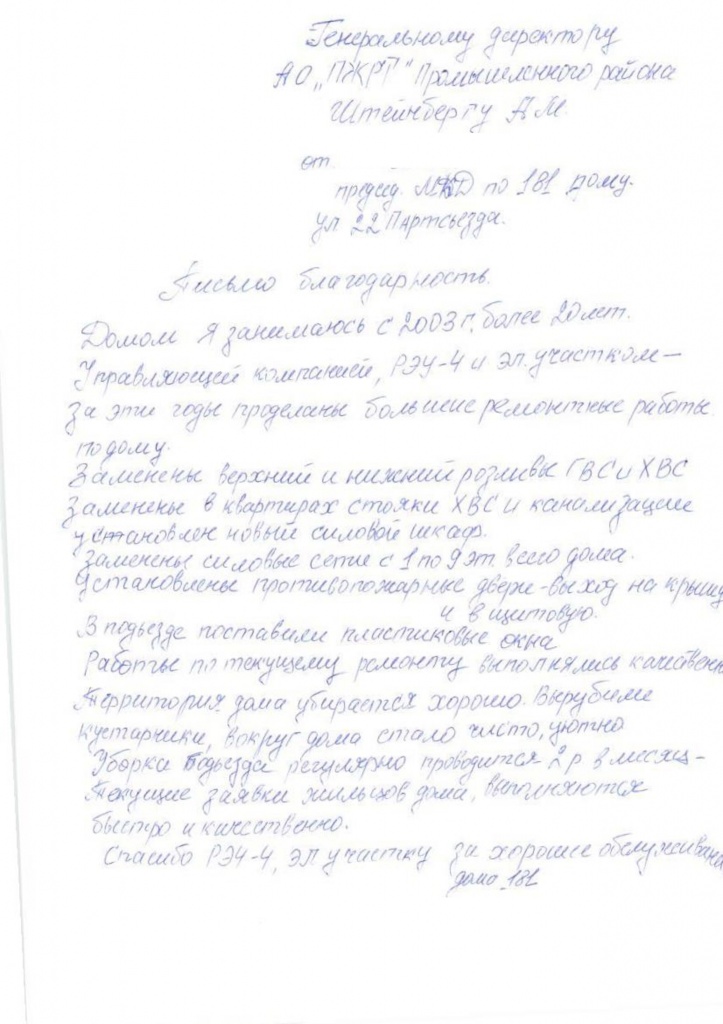 Генеральному директору
АО „ПЖРТ" Промышленного района
Штейнбергу А.М.
от
председ. МКД по 181 дому.
ул 22 Партсъезда.
Письмо благодарность.
Домом я занимаюсь с 2003 г. более 20 лет.
Управляющей компанией, РЭУ-4 и эл. участком –
За эти годы проделаны большие ремонтные работы
по дому.
Заменены верхний и нижний розливы ГВС и ХВС
Заменены в квартирах стояки ХВС и канализации
установлен новый силовой шкаф.
Заменены силовые сети с 1 по 9 эт. всего дома.
Установлены противопожарные двери-выход на крышу
и в щитовую.
В подъезде поставили пластиковые окна
Работы по текущему ремонту выполнялись качественн
Территория дома убирается хорошо. Вырубили
кустарники, вокруг дома стало чисто, уютно
Уборка подъезда регулярно проводится 2 р в месяц –
Текущие заявки жильцов дома, выполняются
быстро и качественно.
Спасибо РЭУ-4, эл участку за хорошее обслуживани
дома 181